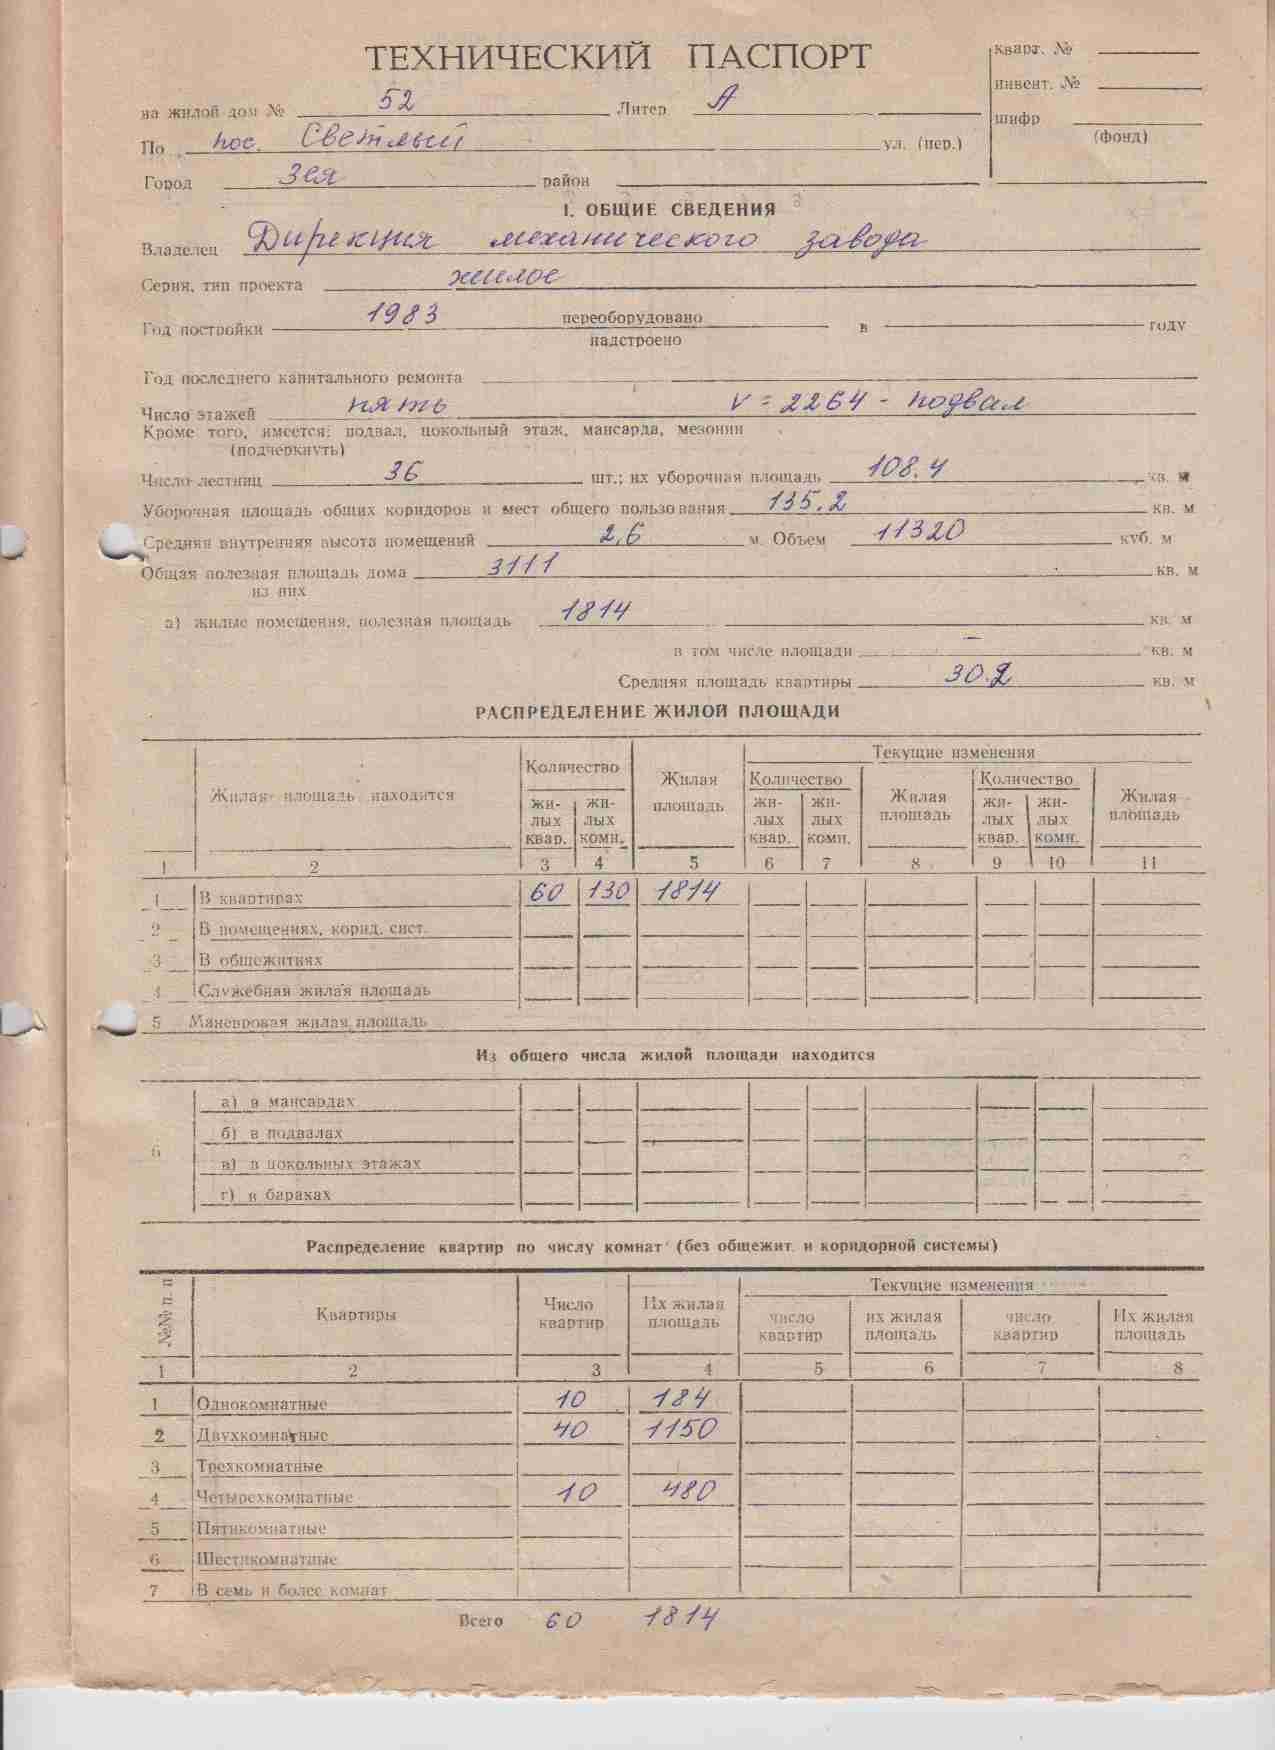 ТЕХНИЧЕСКИЙ ПАСПОРТ
кварт. №
инвент. №
шифр
(фонд)
на жилой дом № 52 Литер А
По пос. Светлый ул. (пер.)
Город Зея район
I. ОБЩИЕ СВЕДЕНИЯ
Владелец Дирекция механического завода
Серия, тип проекта жилое
Год постройки 1983 переоборудовано в году
надстроено
Год последнего капитального ремонта
Число этажей пять V = 2264 - подвал
Кроме того, имеется: подвал, цокольный этаж, мансарда, мезонин
(подчеркнуть)
Число лестниц 36 шт.; их уборочная площадь 108.4 кв. м
Уборочная площадь общих коридоров и мест общего пользования 135.2 кв. м
Средняя внутренняя высота помещений 2,6 м. Объем 11320 куб. м
Общая полезная площадь дома 3111 кв. м
из них
а) жилые помещения, полезная площадь 1814 кв. м
в том числе площади — кв. м
Средняя площадь квартиры 30.2 кв. м
РАСПРЕДЕЛЕНИЕ ЖИЛОЙ ПЛОЩАДИ
Жилая площадь находится Количество Жилая площадь Текущие изменения
Количество Жилая площадь Количество Жилая площадь
жи- жи- жи- жи- жи- жи-
лых лых лых лых лых лых
квар. комн. квар. комн. квар. комн.
1 2 3 4 5 6 7 8 9 10 11
1 В квартирах 60 130 1814
2 В помещениях, корид. сист.
3 В общежитиях
4 Служебная жилая площадь
5 Маневровая жилая площадь
Из общего числа жилой площади находится
6
а) в мансардах
б) в подвалах
в) в цокольных этажах
г) в бараках
Распределение квартир по числу комнат (без общежит. и коридорной системы)
№№ п. п Квартиры Число квартир Их жилая площадь Текущие изменения
число квартир их жилая площадь число квартир Их жилая площадь
1 2 3 4 5 6 7 8
1 Однокомнатные 10 184
2 Двухкомнатные 40 1150
3 Трехкомнатные
4 Четырехкомнатные 10 480
5 Пятикомнатные
6 Шестикомнатные
7 В семь и более комнат
Всего 60 1814